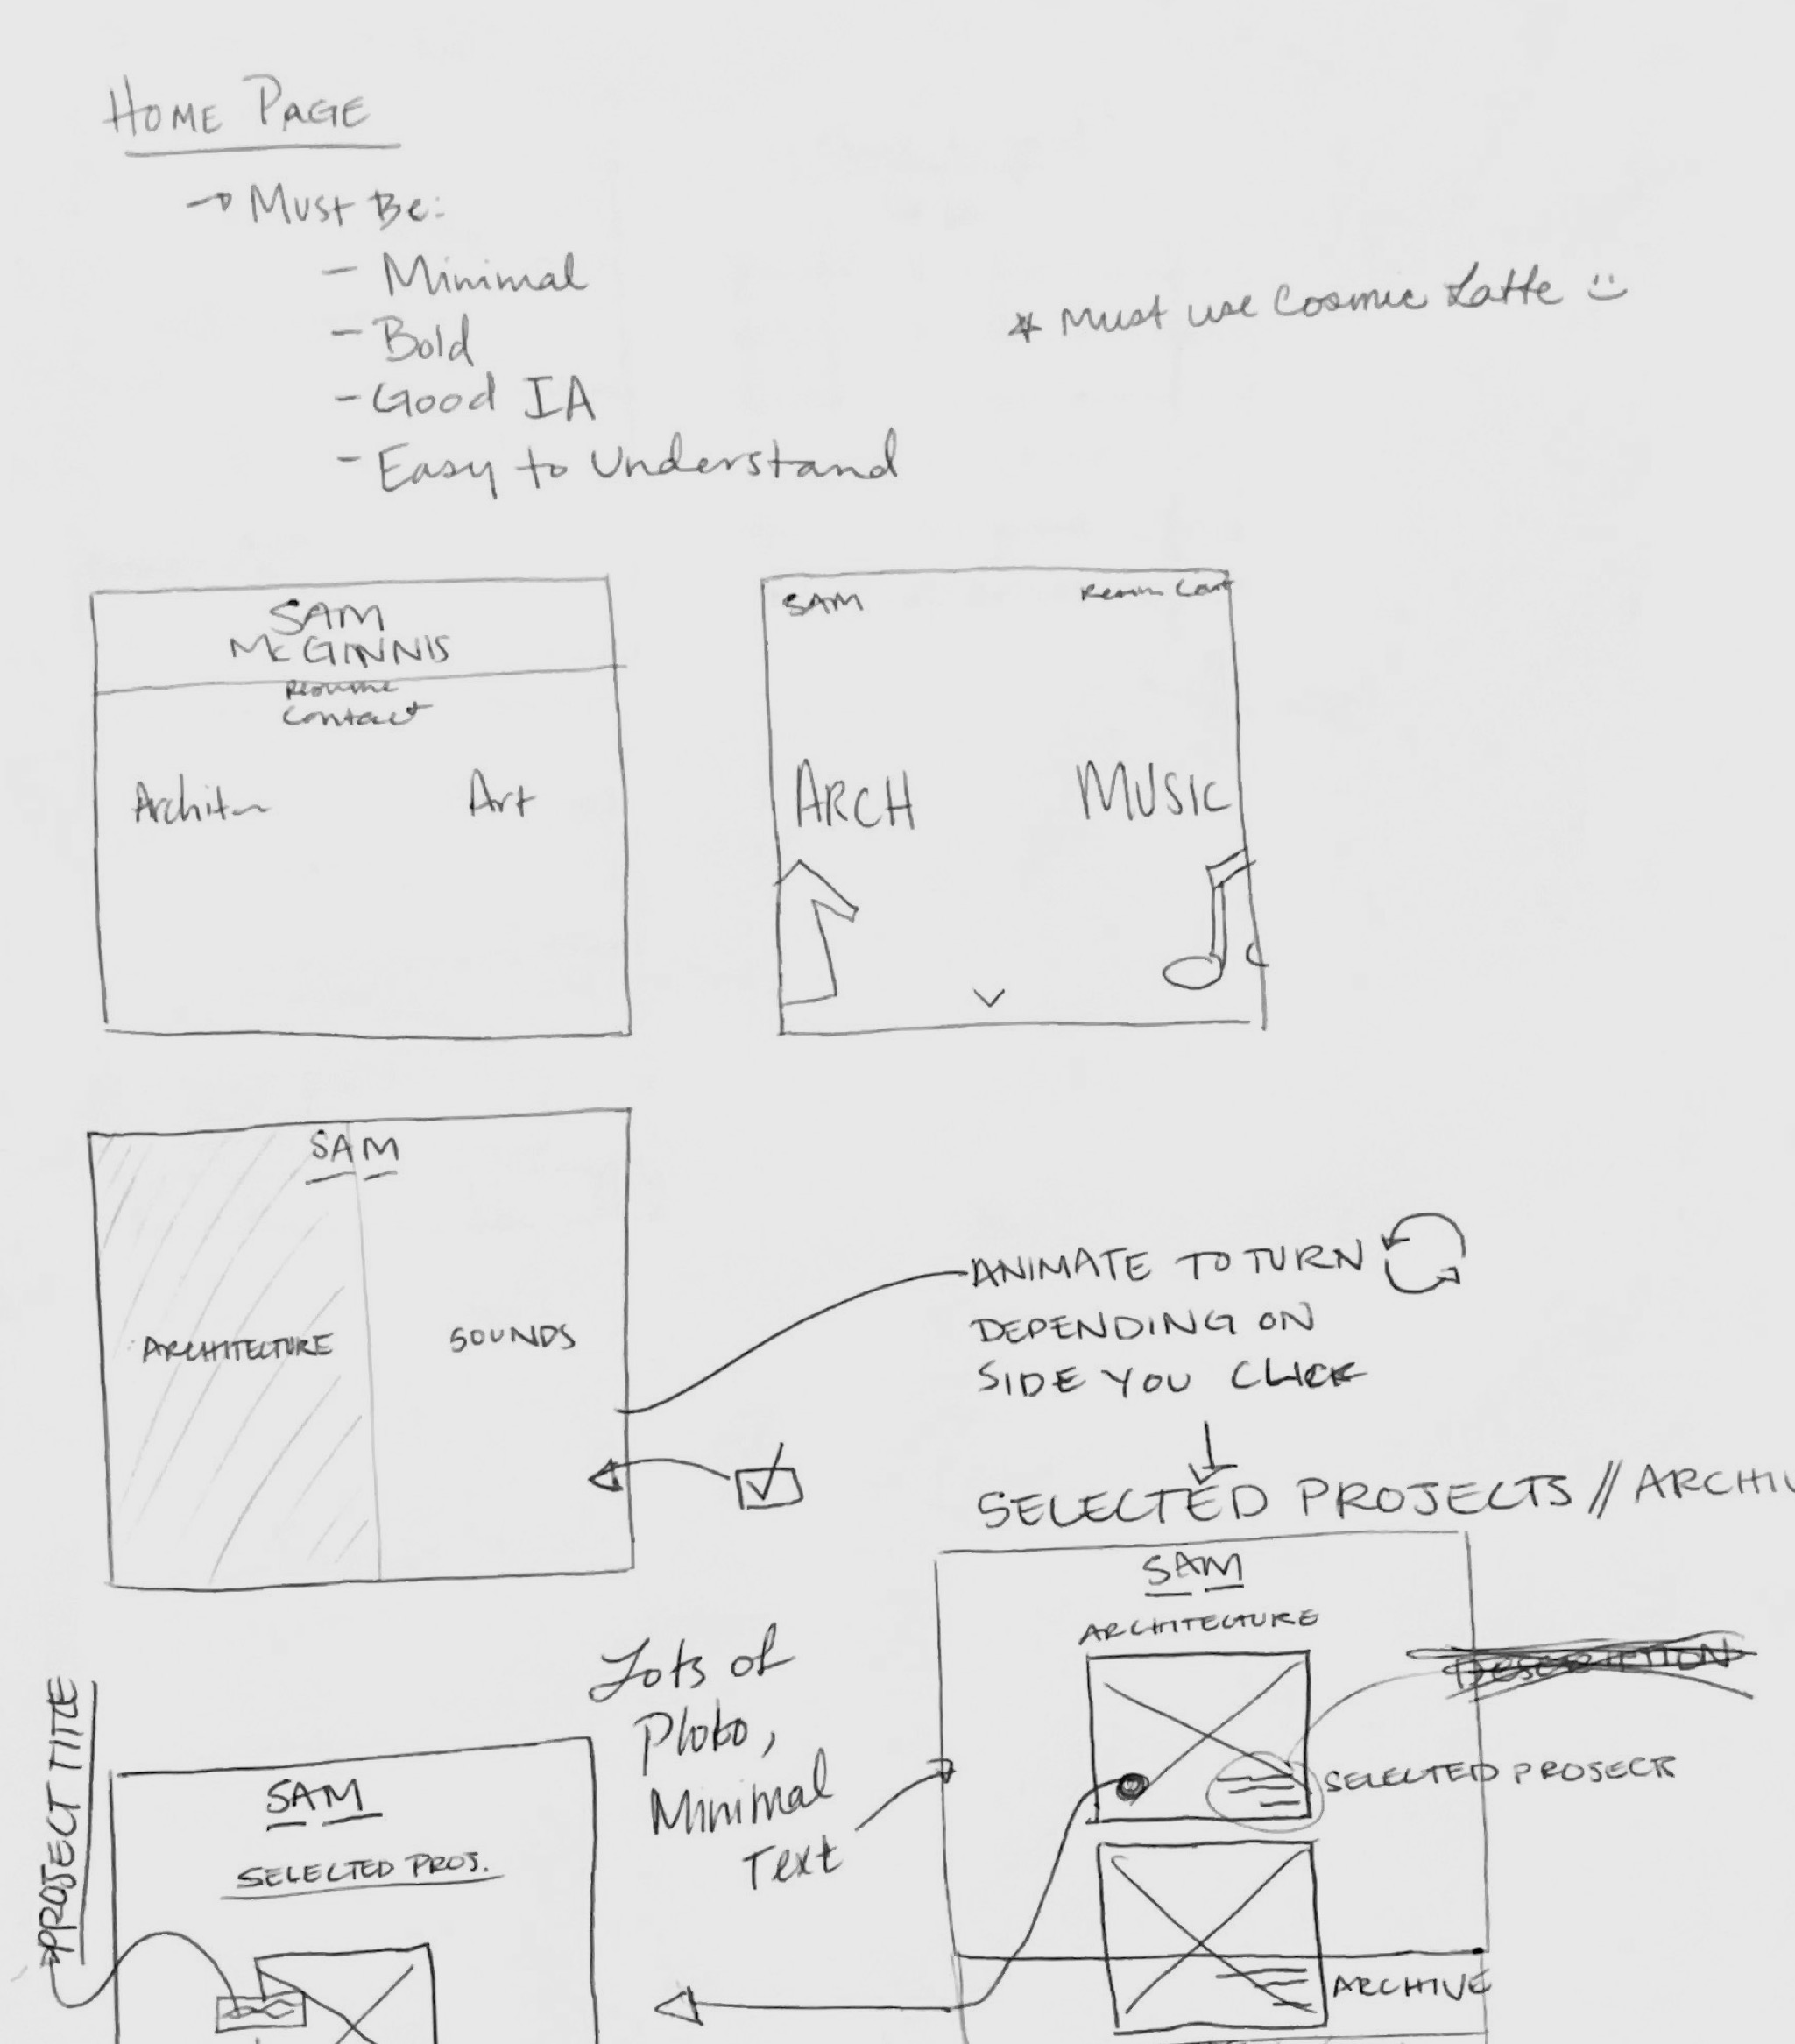 HOME PAGE
→ Must Be:
- Minimal
- Bold
- Good IA
- Easy to Understand
* Must use Cosmic Latte
SAM
McGINNIS
Resume
Contact
Art
SAM
ARCH
MUSIC
SAM
ARCHITECTURE
SOUNDS
ANIMATE TO TURN
DEPENDING ON
SIDE YOU CLICK
SELECTED PROJECTS // ARCHIV
SAM
ARCHITECTURE
DESCRIPTION
SELECTED PROJECT
ARCHIVE
Lots of
Photo,
Minimal
Text
PROJECT TITLE
SAM
SELECTED PROJ.